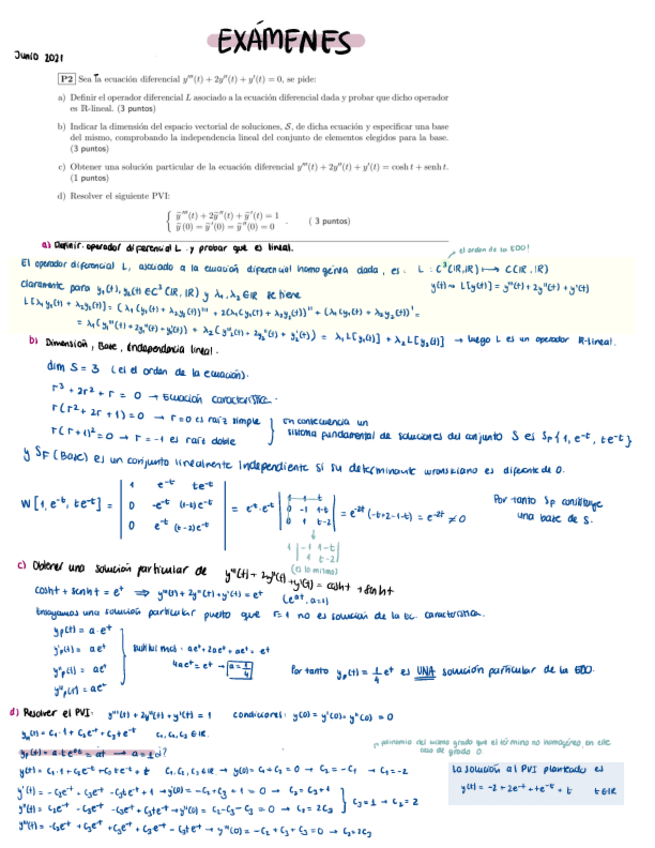 EXÁMENES
Junio 2021
P2 Sea la ecuación diferencial y'''(t) + 2y''(t) + y'(t) = 0, se pide:
a) Definir el operador diferencial L asociado a la ecuación diferencial dada y probar que dicho operador
es R-lineal. (3 puntos)
b) Indicar la dimensión del espacio vectorial de soluciones, S, de dicha ecuación y especificar una base
del mismo, comprobando la independencia lineal del conjunto de elementos elegidos para la base.
(3 puntos)
c) Obtener una solución particular de la ecuación diferencial y'''(t) + 2y''(t) + y'(t) = cosh t + senh t.
(1 puntos)
d) Resolver el siguiente PVI:
{ ỹ'''(t) + 2ỹ''(t) + ỹ'(t) = 1
ỹ(0) = ỹ'(0) = ỹ''(0) = 0 . ( 3 puntos)
a) Definir operador diferencial L y probar que es lineal.
el orden de la EDO!
El operador diferencial L, asociado a la ecuación diferencial homogénea dada, es: L : C³(IR, IR) ↦ C(IR, IR)
y(t) → L[y(t)] = y'''(t) + 2y''(t) + y'(t)
claramente para y₁(t), y₂(t) ∈ C³(IR, IR) y λ₁, λ₂ ∈ IR se tiene
L[λ₁y₁(t) + λ₂y₂(t)] = (λ₁y₁(t) + λ₂y₂(t))''' + 2(λ₁y₁(t) + λ₂y₂(t))'' + (λ₁y₁(t) + λ₂y₂(t))' =
= λ₁(y₁'''(t) + 2y₁''(t) + y₁'(t)) + λ₂(y₂'''(t) + 2y₂''(t) + y₂'(t)) = λ₁L[y₁(t)] + λ₂L[y₂(t)] → luego L es un operador R-lineal.
b) Dimensión, Base, Independencia lineal.
dim S = 3 (el el orden de la ecuación).
r³ + 2r² + r = 0 → Ecuación característica.
r(r² + 2r + 1) = 0 → r = 0 es raíz simple } en consecuencia un
r(r+1)² = 0 → r = -1 es raíz doble sistema fundamental de soluciones del conjunto S es S_F {1, e⁻ᵗ, te⁻ᵗ}
y S_F (Base) es un conjunto linealmente independiente si su determinante wronskiano es diferente de 0.
W[1, e⁻ᵗ, te⁻ᵗ] = | 1 e⁻ᵗ te⁻ᵗ | 0 -e⁻ᵗ (1-t)e⁻ᵗ | 0 e⁻ᵗ (t-2)e⁻ᵗ | = e⁻ᵗ·e⁻ᵗ | 1 1 t | 0 -1 1-t | 0 1 t-2 | = e⁻²ᵗ (-t+2-1-t) = e⁻²ᵗ ≠ 0
Por tanto S_F constituye
una base de S.
1 | -1 1-t | 1 t-2 |
(es lo mismo)
c) Obtener una solución particular de y'''(t) + 2y''(t) + y'(t) = cosh t + senh t
cosh t + senh t = eᵗ ⟹ y'''(t) + 2y''(t) + y'(t) = eᵗ (eᵃᵗ, a=1)
Ensayamos una solución particular puesto que r=1 no es solución de la ec. característica.
y_p(t) = a·eᵗ
y'_p(t) = aeᵗ } sustituimos: aeᵗ + 2aeᵗ + aeᵗ = eᵗ
y''_p(t) = aeᵗ 4aeᵗ = eᵗ → a = 1/4
y'''_p(t) = aeᵗ
Por tanto y_p(t) = 1/4 eᵗ es UNA solución particular de la EDO.
d) Resolver el PVI: y'''(t) + 2y''(t) + y'(t) = 1 condiciones: y(0) = y'(0) = y''(0) = 0
y_h(t) = C₁·1 + C₂e⁻ᵗ + C₃te⁻ᵗ C₁, C₂, C₃ ∈ IR.
polinomio del mismo grado que el término no homogéneo, en este
caso de grado 0.
y_p(t) = a·t·e⁰ᵗ = at → a = 1 ¿?
y(t) = C₁·1 + C₂e⁻ᵗ + C₃te⁻ᵗ + t C₁, C₂, C₃ ∈ IR → y(0) = C₁ + C₂ = 0 → C₂ = -C₁ → C₁ = -2
y'(t) = -C₂e⁻ᵗ + C₃e⁻ᵗ - C₃te⁻ᵗ + 1 → y'(0) = -C₂ + C₃ + 1 = 0 → C₂ = C₃ + 1
y''(t) = C₂e⁻ᵗ - C₃e⁻ᵗ - C₃e⁻ᵗ + C₃te⁻ᵗ → y''(0) = C₂ - C₃ - C₃ = 0 → C₂ = 2C₃ } C₃ = 1 → C₂ = 2
y'''(t) = -C₂e⁻ᵗ + C₃e⁻ᵗ + C₃e⁻ᵗ + C₃e⁻ᵗ - C₃te⁻ᵗ → y'''(0) = -C₂ + C₃ + C₃ = 0 → C₂ = 2C₃
La solución al PVI planteado es
y(t) = -2 + 2e⁻ᵗ + te⁻ᵗ + t t ∈ IR